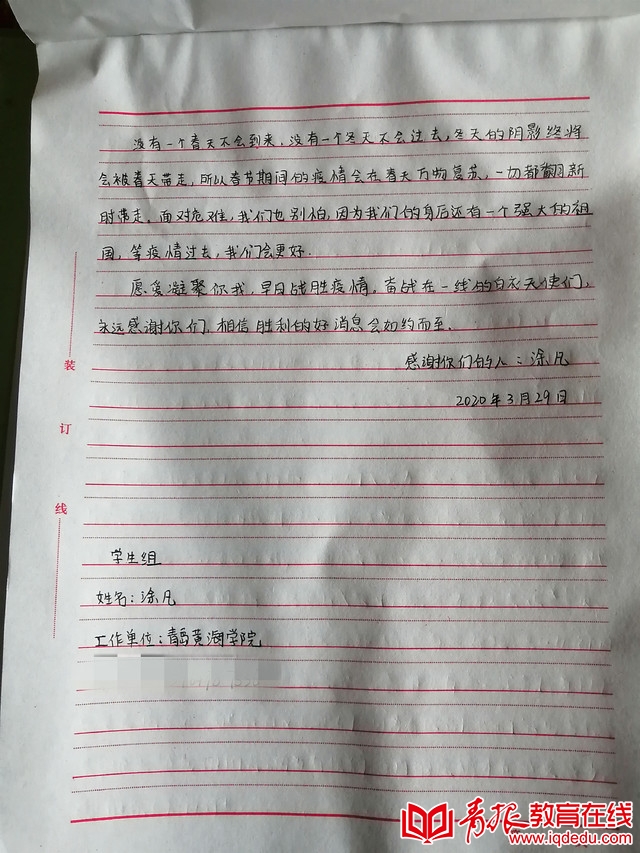 没有一个春天不会到来,没有一个冬天不会过去,冬天的阴影终将
会被春天带走,所以春节期间的疫情会在春天万物复苏,一切都翻新
时带走。面对危难,我们也别怕,因为我们的身后还有一个强大的祖
国,等疫情过去,我们会更好.
愿爱凝聚你我,早日战胜疫情,奋战在一线的白衣天使们,
永远感谢你们,相信胜利的好消息会如约而至.
感谢你们的人:涂凡
2020年3月29日
装
订
线
学生组
姓名:涂凡
工作单位:青岛黄海学院
青报教育在线
www.iqdedu.com